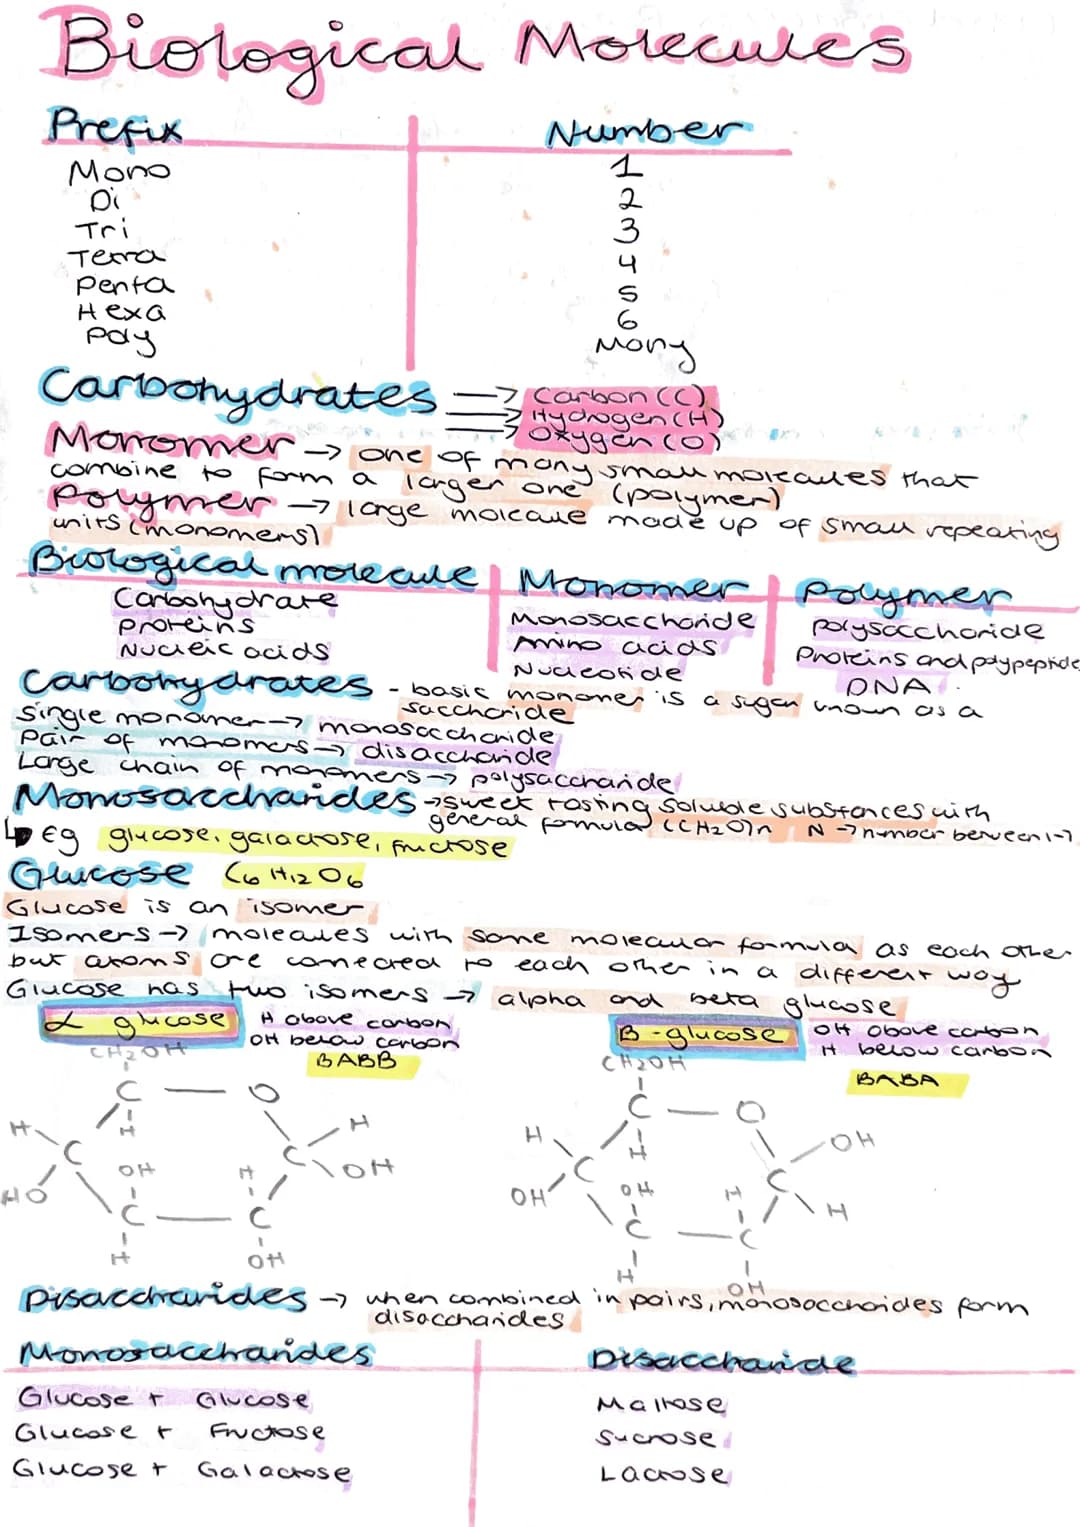 Biological Molecules
Prefix Number
Mono 1
Di 2
Tri 3
Tetra 4
Penta 5
Hexa 6
Poly Many
Carbohydrates → Carbon (C)
→ Hydrogen (H)
→ Oxygen (O)
Monomer → one of many small molecules that
combine to form a larger one (polymer)
Polymer → large molecule made up of small repeating
units (monomers)
Biological molecule Monomer Polymer
Carbohydrate Monosaccharide Polysaccharide
Proteins Amino acids Proteins and polypeptide
Nucleic acids Nucleotide DNA
Carbohydrates - basic monomer is a sugar known as a
saccharide
Single monomer → monosaccharide
Pair of monomers → disaccharide
Large chain of monomers → polysaccharide
Monosaccharides → sweet tasting soluble substances with
general formula (CH2O)n N → number between 1-7
↳ Eg glucose, galactose, fructose
Glucose C6 H12 O6
Glucose is an isomer
Isomers → molecules with same molecular formula as each other
but atoms are connected to each other in a different way
Glucose has two isomers → alpha and beta glucose
α glucose H above carbon
OH below carbon
BABB
B - glucose OH above carbon
H below carbon
BABA
CH2OH
C O
H H H
C C
HO OH H OH
C C
H OH
CH2OH
C O
H H OH
C C
OH OH H H
C C
H OH
Disaccharides → when combined in pairs, monosaccharides form
disaccharides
Monosaccharides Disaccharide
Glucose + Glucose Maltose
Glucose + Fructose Sucrose
Glucose + Galactose Lactose